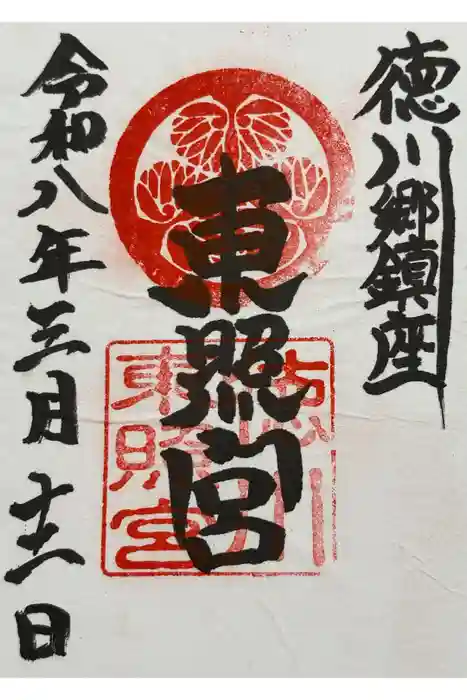 徳川郷鎮座
東照宮
徳川
東照宮
令和八年三月日